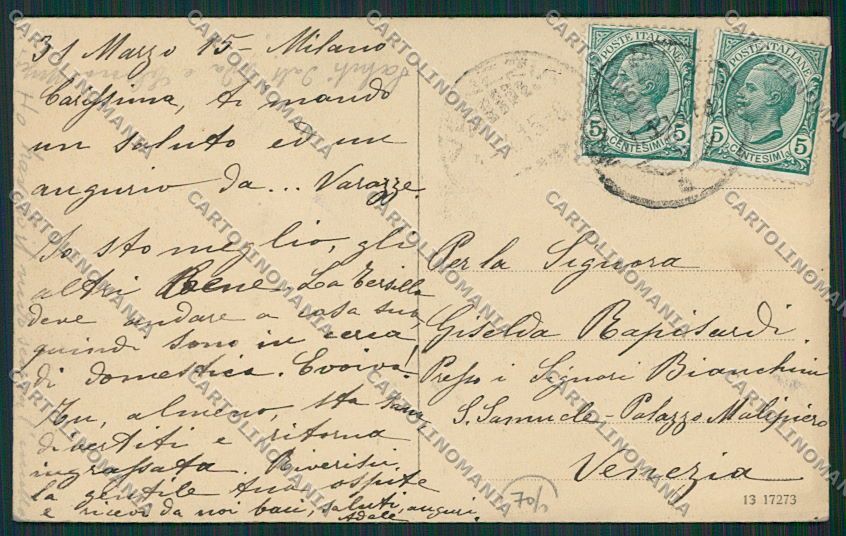 31 Marzo 15 - Milano
Carissima, ti mando
un saluto ed un
augurio da... Varazze.
Io sto meglio, gli
altri bene. La Tersilla
deve andare a casa sua,
quindi sono in cerca
di domestica. Evviva!
Tu, almeno, sta sana,
divertiti e ritorna
ingrassata. Riverisci
la gentile tua ospite
e ricevi da noi baci, saluti, auguri.
Adele
POSTE ITALIANE
5 CENTESIMI 5
POSTE ITALIANE
5 CENTESIMI 5
Per la Signora
Giselda Rapisardi
Presso i Signori Bianchini
S. Samuele - Palazzo Malipiero
Venezia
70/c
13 17273
CARTOLINOMANIA